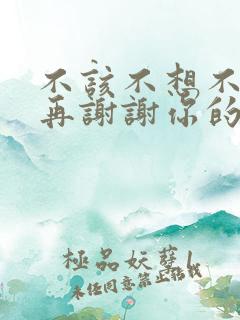 不該不想不
再謝謝你的
極品妖孽1
未任同意禁止転載